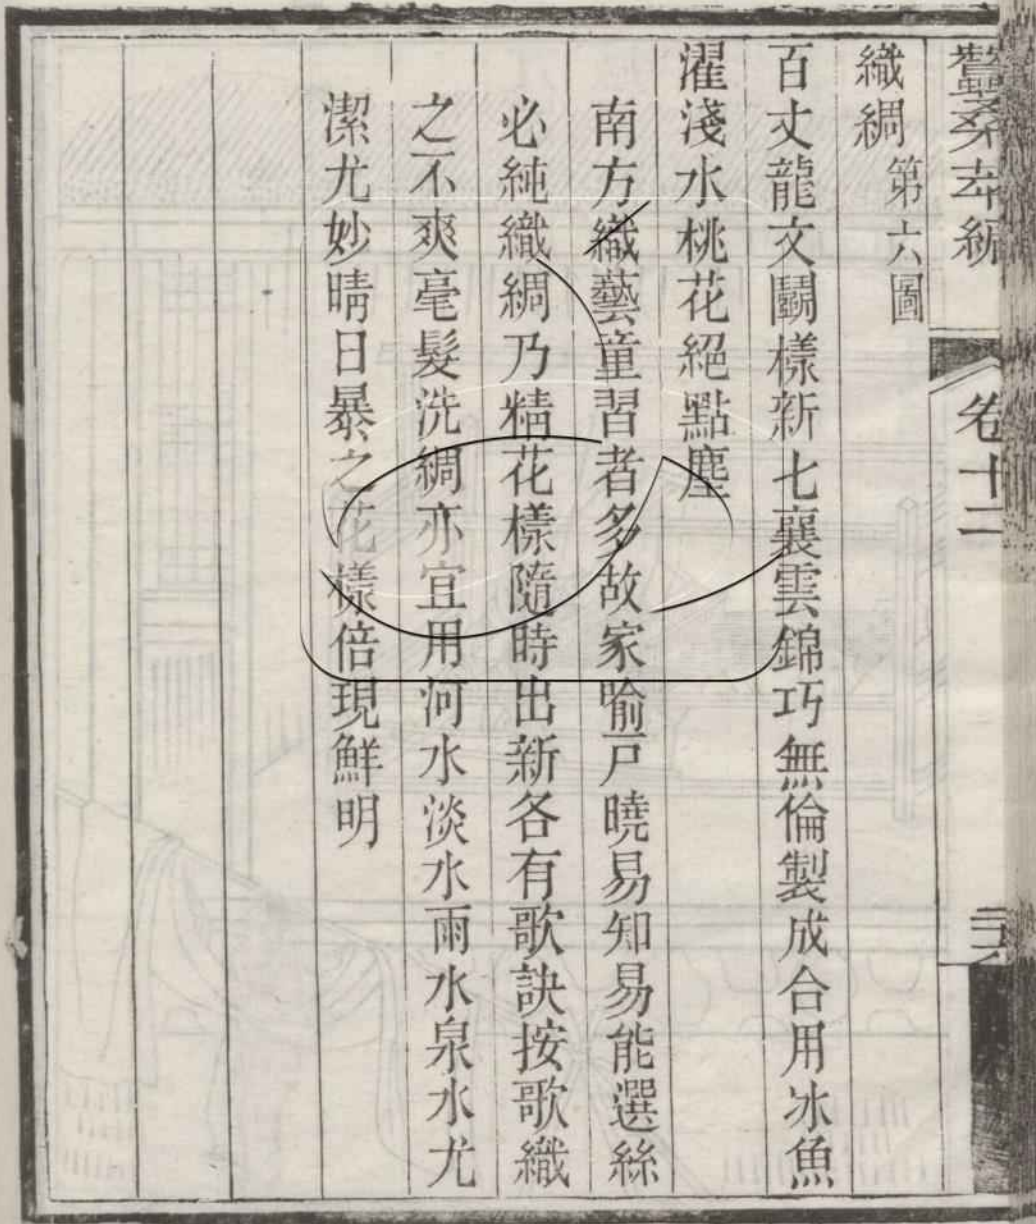 蠶桑萃編 卷十二
織綢 第六圖
百丈龍文鬬樣新七襄雲錦巧無倫製成合用冰魚
濯淺水桃花絕點塵
南方織藝童習者多故家喻戸曉易知易能選絲
必純織綢乃精花樣隨時出新各有歌訣按歌織
之不爽毫髮洗綢亦宜用河水淡水雨水泉水尤
潔尤妙晴日暴之花樣倍現鮮明